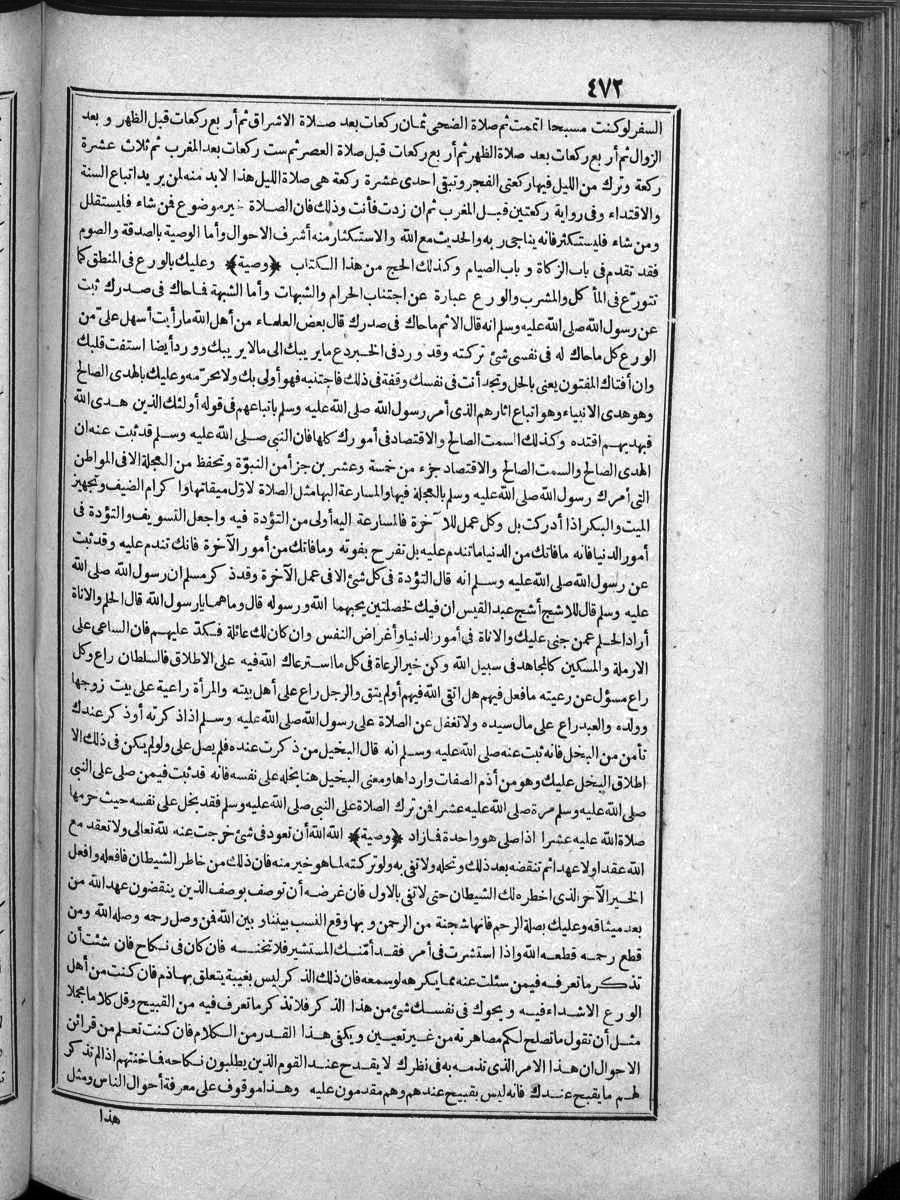 ٤٧٢
السفر لو كنت مسبحا اتممت ثم صلاة الضحى ثمان ركعات بعد صلاة الاشراق ثم أربع ركعات قبل الظهر وبعد
الزوال ثم أربع ركعات بعد صلاة الظهر ثم أربع ركعات قبل صلاة العصر ثم ست ركعات بعد المغرب ثم ثلاث عشرة
ركعة وترك من الليل فيها ركعتى الفجر وتبقى احدى عشرة ركعة هى صلاة الليل هذا لا بد منه لمن يريد اتباع السنة
والاقتداء وفى رواية ركعتين قبل المغرب ثم ان زدت فأنت وذلك فان الصلاة خير موضوع فمن شاء فليستقلل
ومن شاء فليستكثر فانه يناجى ربه والحديث مع الله والاستكثار منه أشرف الاحوال وأما الوصية بالصدقة والصوم
فقد تقدم فى باب الزكاة وباب الصيام وكذلك الحج من هذا الكتاب ﴿وصية﴾ وعليك بالورع فى المنطق كما
تتورّع فى المأكل والمشرب والورع عبارة عن اجتناب الحرام والشبهات وأما الشبهة فاحاك فى صدرك ثبت
عن رسول الله صلى الله عليه وسلم انه قال الاثم ماحاك فى صدرك قال بعض العلماء من أهل الله ما رأيت أسهل علىّ من
الورع كل ماحاك له فى نفسى شئ تركته وقد ورد فى الخبر دع ما يريبك الى مالا يريبك وورد أيضا استفت قلبك
وان أفتاك المفتون يعنى بالحل وتجد أنت فى نفسك وقفة فى ذلك فاجتنبه فهو أولى بك ولا تحرّمه وعليك بالهدى الصالح
وهو هدى الانبياء وهو اتباع اثارهم الذى أمر رسول الله صلى الله عليه وسلم باتباعهم فى قوله أولئك الذين هدى الله
فبهديهم اقتده وكذلك السمت الصالح والاقتصاد فى أمورك كلها فان النبى صلى الله عليه وسلم قد ثبت عنه ان
الهدى الصالح والسمت الصالح والاقتصاد جزء من خمسة وعشرين جزأ من النبوّة وتحفظ من العجلة الا فى المواطن
التى أمرك رسول الله صلى الله عليه وسلم بالعجلة فيها والمسارعة اليها مثل الصلاة لاوّل ميقاتها واكرام الضيف وتجهيز
الميت والبكر اذا أدركت بل وكل عمل للآخرة فالمسارعة اليه أولى من التؤدة فيه واجعل التسويف والتؤدة فى
أمور الدنيا فانه مافاتك من الدنيا ماتندم عليه بل تفرح بفوته ومافاتك من أمور الآخرة فانك تندم عليه وقد ثبت
عن رسول الله صلى الله عليه وسلم انه قال التؤدة فى كل شئ الا فى عمل الآخرة وقد ذكر مسلم ان رسول الله صلى الله
عليه وسلم قال للاشج أشج عبد القيس ان فيك لخصلتين يحبهما الله ورسوله قال وما هما يارسول الله قال الحلم والاناة
أراد الحلم عمن جنى عليك والاناة فى أمور الدنيا وأغراض النفس وان كان لك عائلة فكدّ عليهم فان الساعى على
الارملة والمسكين كالمجاهد فى سبيل الله وكن خير الرعاة فى كل ما استرعاك الله فيه على الاطلاق فالسلطان راع وكل
راع مسؤل عن رعيته مافعل فيهم هل اتقى الله فيهم أو لم يتق والرجل راع على أهل بيته والمرأة راعية على بيت زوجها
وولده والعبد راع على مال سيده ولا تغفل عن الصلاة على رسول الله صلى الله عليه وسلم اذا ذكرته أو ذكر عندك
تأمن من البخل فانه ثبت عنه صلى الله عليه وسلم انه قال البخيل من ذكرت عنده فلم يصل على ولو لم يكن فى ذلك الا
اطلاق البخل عليك وهو من أذم الصفات وارداها ومعنى البخيل هنا بخله على نفسه فانه قد ثبت فيمن صلى على النبى
صلى الله عليه وسلم مرة صلى الله عليه عشرا فمن ترك الصلاة على النبى صلى الله عليه وسلم فقد بخل على نفسه حيث حرمها
صلاة الله عليه عشرا اذا صلى هو واحدة فمازاد ﴿وصية﴾ الله الله أن تعود فى شئ خرجت عنه لله تعالى ولا تعقد مع
الله عقدا ولا عهدا ثم تنقضه بعد ذلك وتحله ولا تفى به ولو تركته لما هو خير منه فان ذلك من خاطر الشيطان فافعله وافعل
الخير الآخر الذى اخطره لك الشيطان حتى لا تفى بالاول فان غرضه أن توصف بوصف الذين ينقضون عهد الله من
بعد ميثاقه وعليك بصلة الرحم فانها شجنة من الرحمن وبها وقع النسب بيننا وبين الله فمن وصل رحمه وصله الله ومن
قطع رحمه قطعه الله واذا استشرت فى أمر فقد أمّنك المستشير فلا تخنه فان كان فى نكاح فان شئت أن
تذكر ماتعرفه فيمن سئلت عنه مما يكرهه لو سمعه فان ذلك الذكر ليس بغيبة يتعلق بها ذم فان كنت من أهل
الورع الاشداء فيه ويحوك فى نفسك شئ من هذا الذكر فلا تذكر ماتعرف فيه من القبيح وقل كلاما مجملا
مثل أن تقول ماتصلح لكم مصاهرته من غير تعيين ويكفى هذا القدر من الكلام فان كنت تعلم من قرائن
الاحوال ان هذا الامر الذى تذمه به فى نظرك لا يقدح عند القوم الذين يطلبون نكاحه فما خنتهم اذا لم تذكر
لهم مايقبح عندك فانه ليس بقبيح عندهم وهم مقدمون عليه وهذا موقوف على معرفة أحوال الناس ومثل
هذا